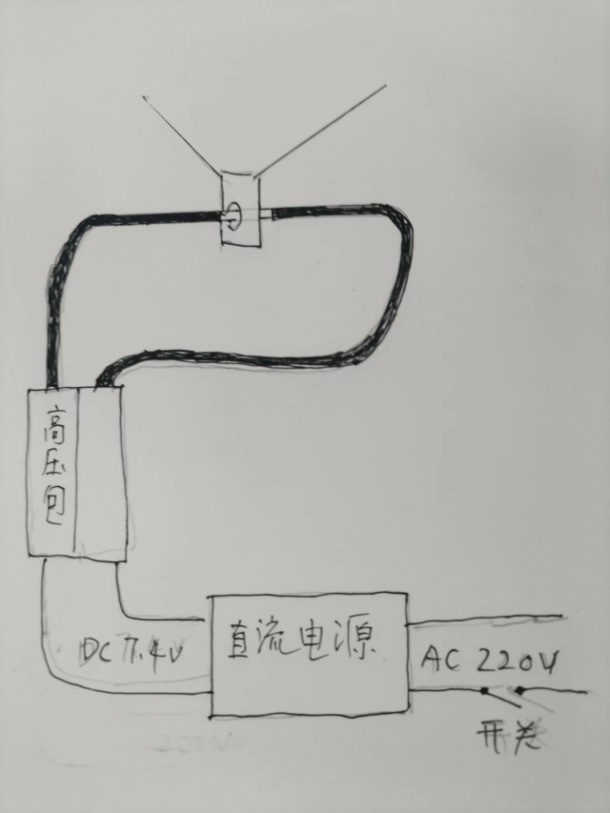 高压包
DC 7.4V
直流电源
AC 220V
开关